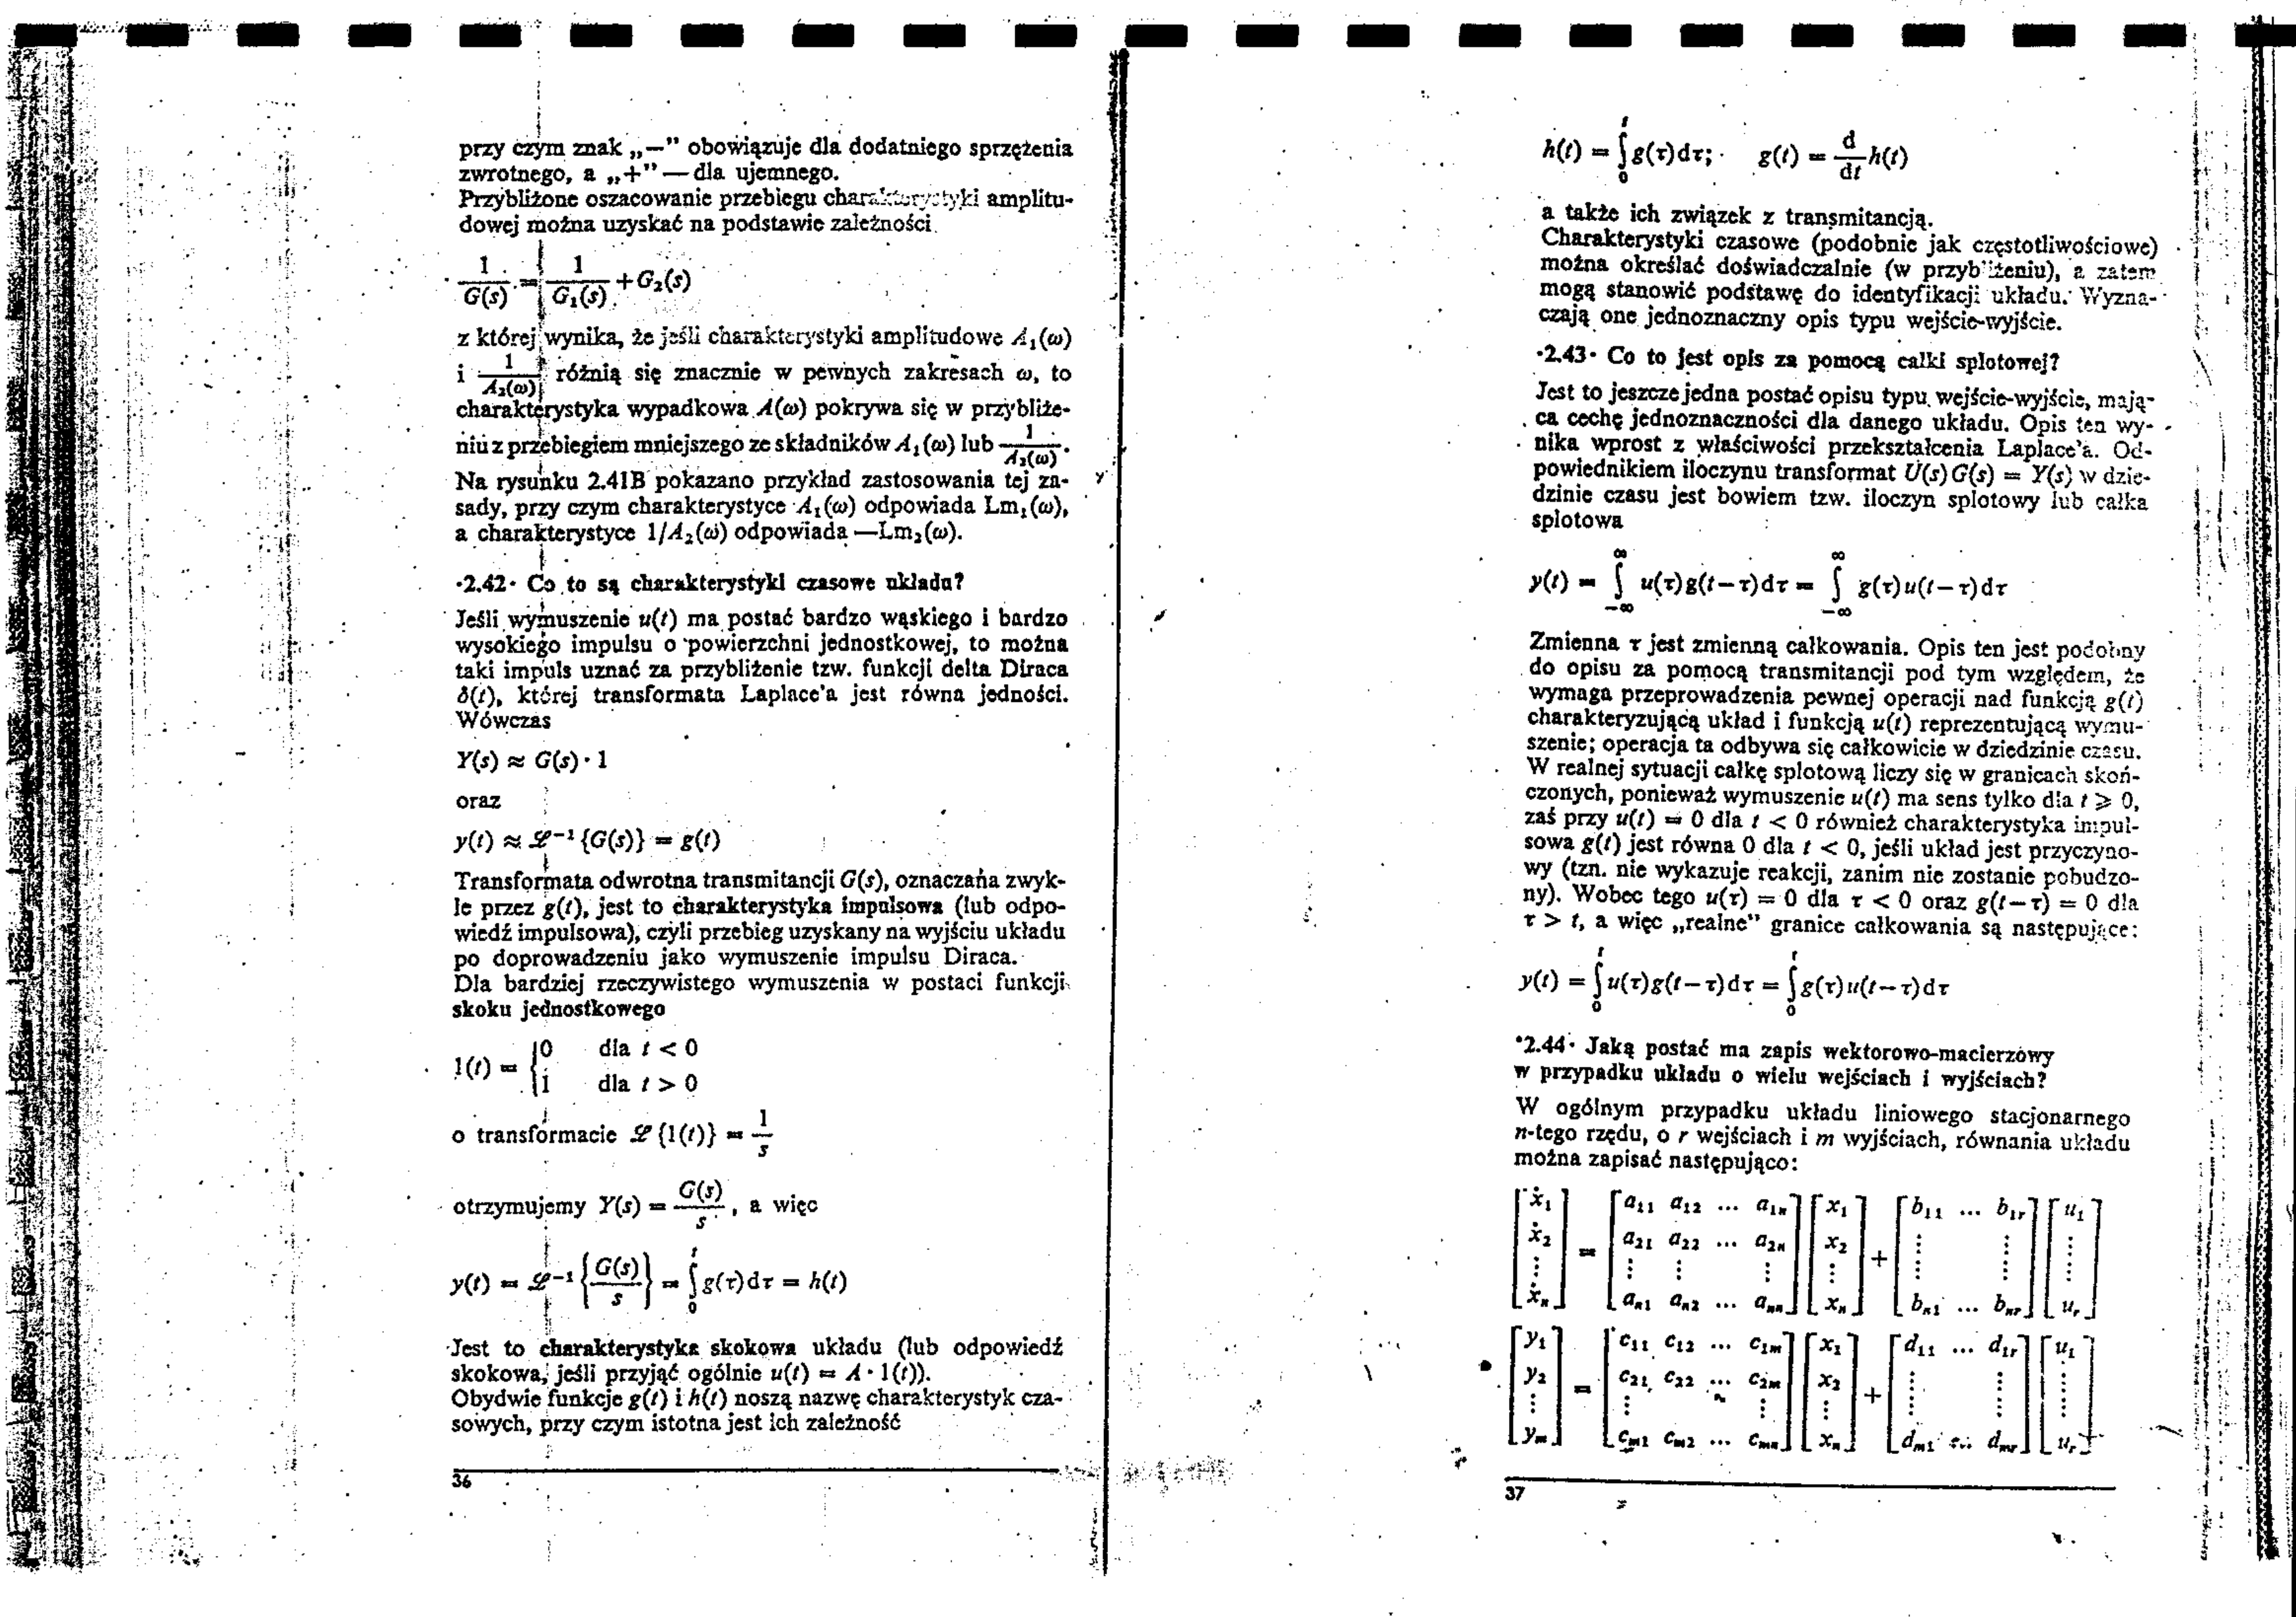 przy czym znak „—” obowiązuje dla dodatniego sprzężenia
zwrotnego, a „+” — dla ujemnego.
Przybliżone oszacowanie przebiegu charakterystyki amplitu-
dowej można uzyskać na podstawie zależności
1/G(s) = 1/G₁(s) + G₂(s)
z której wynika, że jeśli charakterystyki amplitudowe A₁(ω)
i 1/A₂(ω) różnią się znacznie w pewnych zakresach ω, to
charakterystyka wypadkowa A(ω) pokrywa się w przybliże-
niu z przebiegiem mniejszego ze składników A₁(ω) lub 1/A₂(ω).
Na rysunku 2.41B pokazano przykład zastosowania tej za-
sady, przy czym charakterystyce A₁(ω) odpowiada Lm₁(ω),
a charakterystyce 1/A₂(ω) odpowiada —Lm₂(ω).
·2.42· Co to są charakterystyki czasowe układu?
Jeśli wymuszenie u(t) ma postać bardzo wąskiego i bardzo
wysokiego impulsu o powierzchni jednostkowej, to można
taki impuls uznać za przybliżenie tzw. funkcji delta Diraca
δ(t), której transformata Laplace'a jest równa jedności.
Wówczas
Y(s) ≈ G(s) · 1
oraz
y(t) ≈ ℒ⁻¹{G(s)} = g(t)
Transformata odwrotna transmitancji G(s), oznaczana zwyk-
le przez g(t), jest to charakterystyka impulsowa (lub odpo-
wiedź impulsowa), czyli przebieg uzyskany na wyjściu układu
po doprowadzeniu jako wymuszenie impulsu Diraca.
Dla bardziej rzeczywistego wymuszenia w postaci funkcji
skoku jednostkowego
1(t) = {0 dla t < 0
1 dla t > 0
o transformacie ℒ{1(t)} = 1/s
otrzymujemy Y(s) = G(s)/s, a więc
y(t) = ℒ⁻¹{G(s)/s} = ∫₀ᵗ g(τ)dτ = h(t)
Jest to charakterystyka skokowa układu (lub odpowiedź
skokowa, jeśli przyjąć ogólnie u(t) = A · 1(t)).
Obydwie funkcje g(t) i h(t) noszą nazwę charakterystyk cza-
sowych, przy czym istotna jest ich zależność
36
h(t) = ∫₀ᵗ g(τ)dτ; g(t) = d/dt h(t)
a także ich związek z transmitancją.
Charakterystyki czasowe (podobnie jak częstotliwościowe)
można określać doświadczalnie (w przybliżeniu), a zatem
mogą stanowić podstawę do identyfikacji układu. Wyzna-
czają one jednoznaczny opis typu wejście-wyjście.
·2.43· Co to jest opis za pomocą całki splotowej?
Jest to jeszcze jedna postać opisu typu wejście-wyjście, mają-
ca cechę jednoznaczności dla danego układu. Opis ten wy-
nika wprost z właściwości przekształcenia Laplace'a. Od-
powiednikiem iloczynu transformat U(s)G(s) = Y(s) w dzie-
dzinie czasu jest bowiem tzw. iloczyn splotowy lub całka
splotowa
y(t) = ∫₋∞^∞ u(τ)g(t−τ)dτ = ∫₋∞^∞ g(τ)u(t−τ)dτ
Zmienna τ jest zmienną całkowania. Opis ten jest podobny
do opisu za pomocą transmitancji pod tym względem, że
wymaga przeprowadzenia pewnej operacji nad funkcją g(t)
charakteryzującą układ i funkcją u(t) reprezentującą wymu-
szenie; operacja ta odbywa się całkowicie w dziedzinie czasu.
W realnej sytuacji całkę splotową liczy się w granicach skoń-
czonych, ponieważ wymuszenie u(t) ma sens tylko dla t ⩾ 0,
zaś przy u(t) = 0 dla t < 0 również charakterystyka impul-
sowa g(t) jest równa 0 dla t < 0, jeśli układ jest przyczyno-
wy (tzn. nie wykazuje reakcji, zanim nie zostanie pobudzo-
ny). Wobec tego u(τ) = 0 dla τ < 0 oraz g(t−τ) = 0 dla
τ > t, a więc „realne” granice całkowania są następujące:
y(t) = ∫₀ᵗ u(τ)g(t−τ)dτ = ∫₀ᵗ g(τ)u(t−τ)dτ
·2.44· Jaką postać ma zapis wektorowo-macierzowy
w przypadku układu o wielu wejściach i wyjściach?
W ogólnym przypadku układu liniowego stacjonarnego
n-tego rzędu, o r wejściach i m wyjściach, równania układu
można zapisać następująco:
[ẋ₁] [a₁₁ a₁₂ ... a₁ₙ] [x₁] [b₁₁ ... b₁ᵣ] [u₁]
[ẋ₂] = [a₂₁ a₂₂ ... a₂ₙ] [x₂] + [⋮ ⋮] [⋮]
[⋮] [⋮ ⋮ ⋮] [⋮]
[ẋₙ] [aₙ₁ aₙ₂ ... aₙₙ] [xₙ] [bₙ₁ ... bₙᵣ] [uᵣ]
[y₁] [c₁₁ c₁₂ ... c₁ₘ] [x₁] [d₁₁ ... d₁ᵣ] [u₁]
[y₂] = [c₂₁ c₂₂ ... c₂ₘ] [x₂] + [⋮ ⋮] [⋮]
[⋮] [⋮ ⋮] [⋮]
[yₘ] [cₘ₁ cₘ₂ ... cₘₙ] [xₙ] [dₘ₁ ... dₘᵣ] [uᵣ]
37